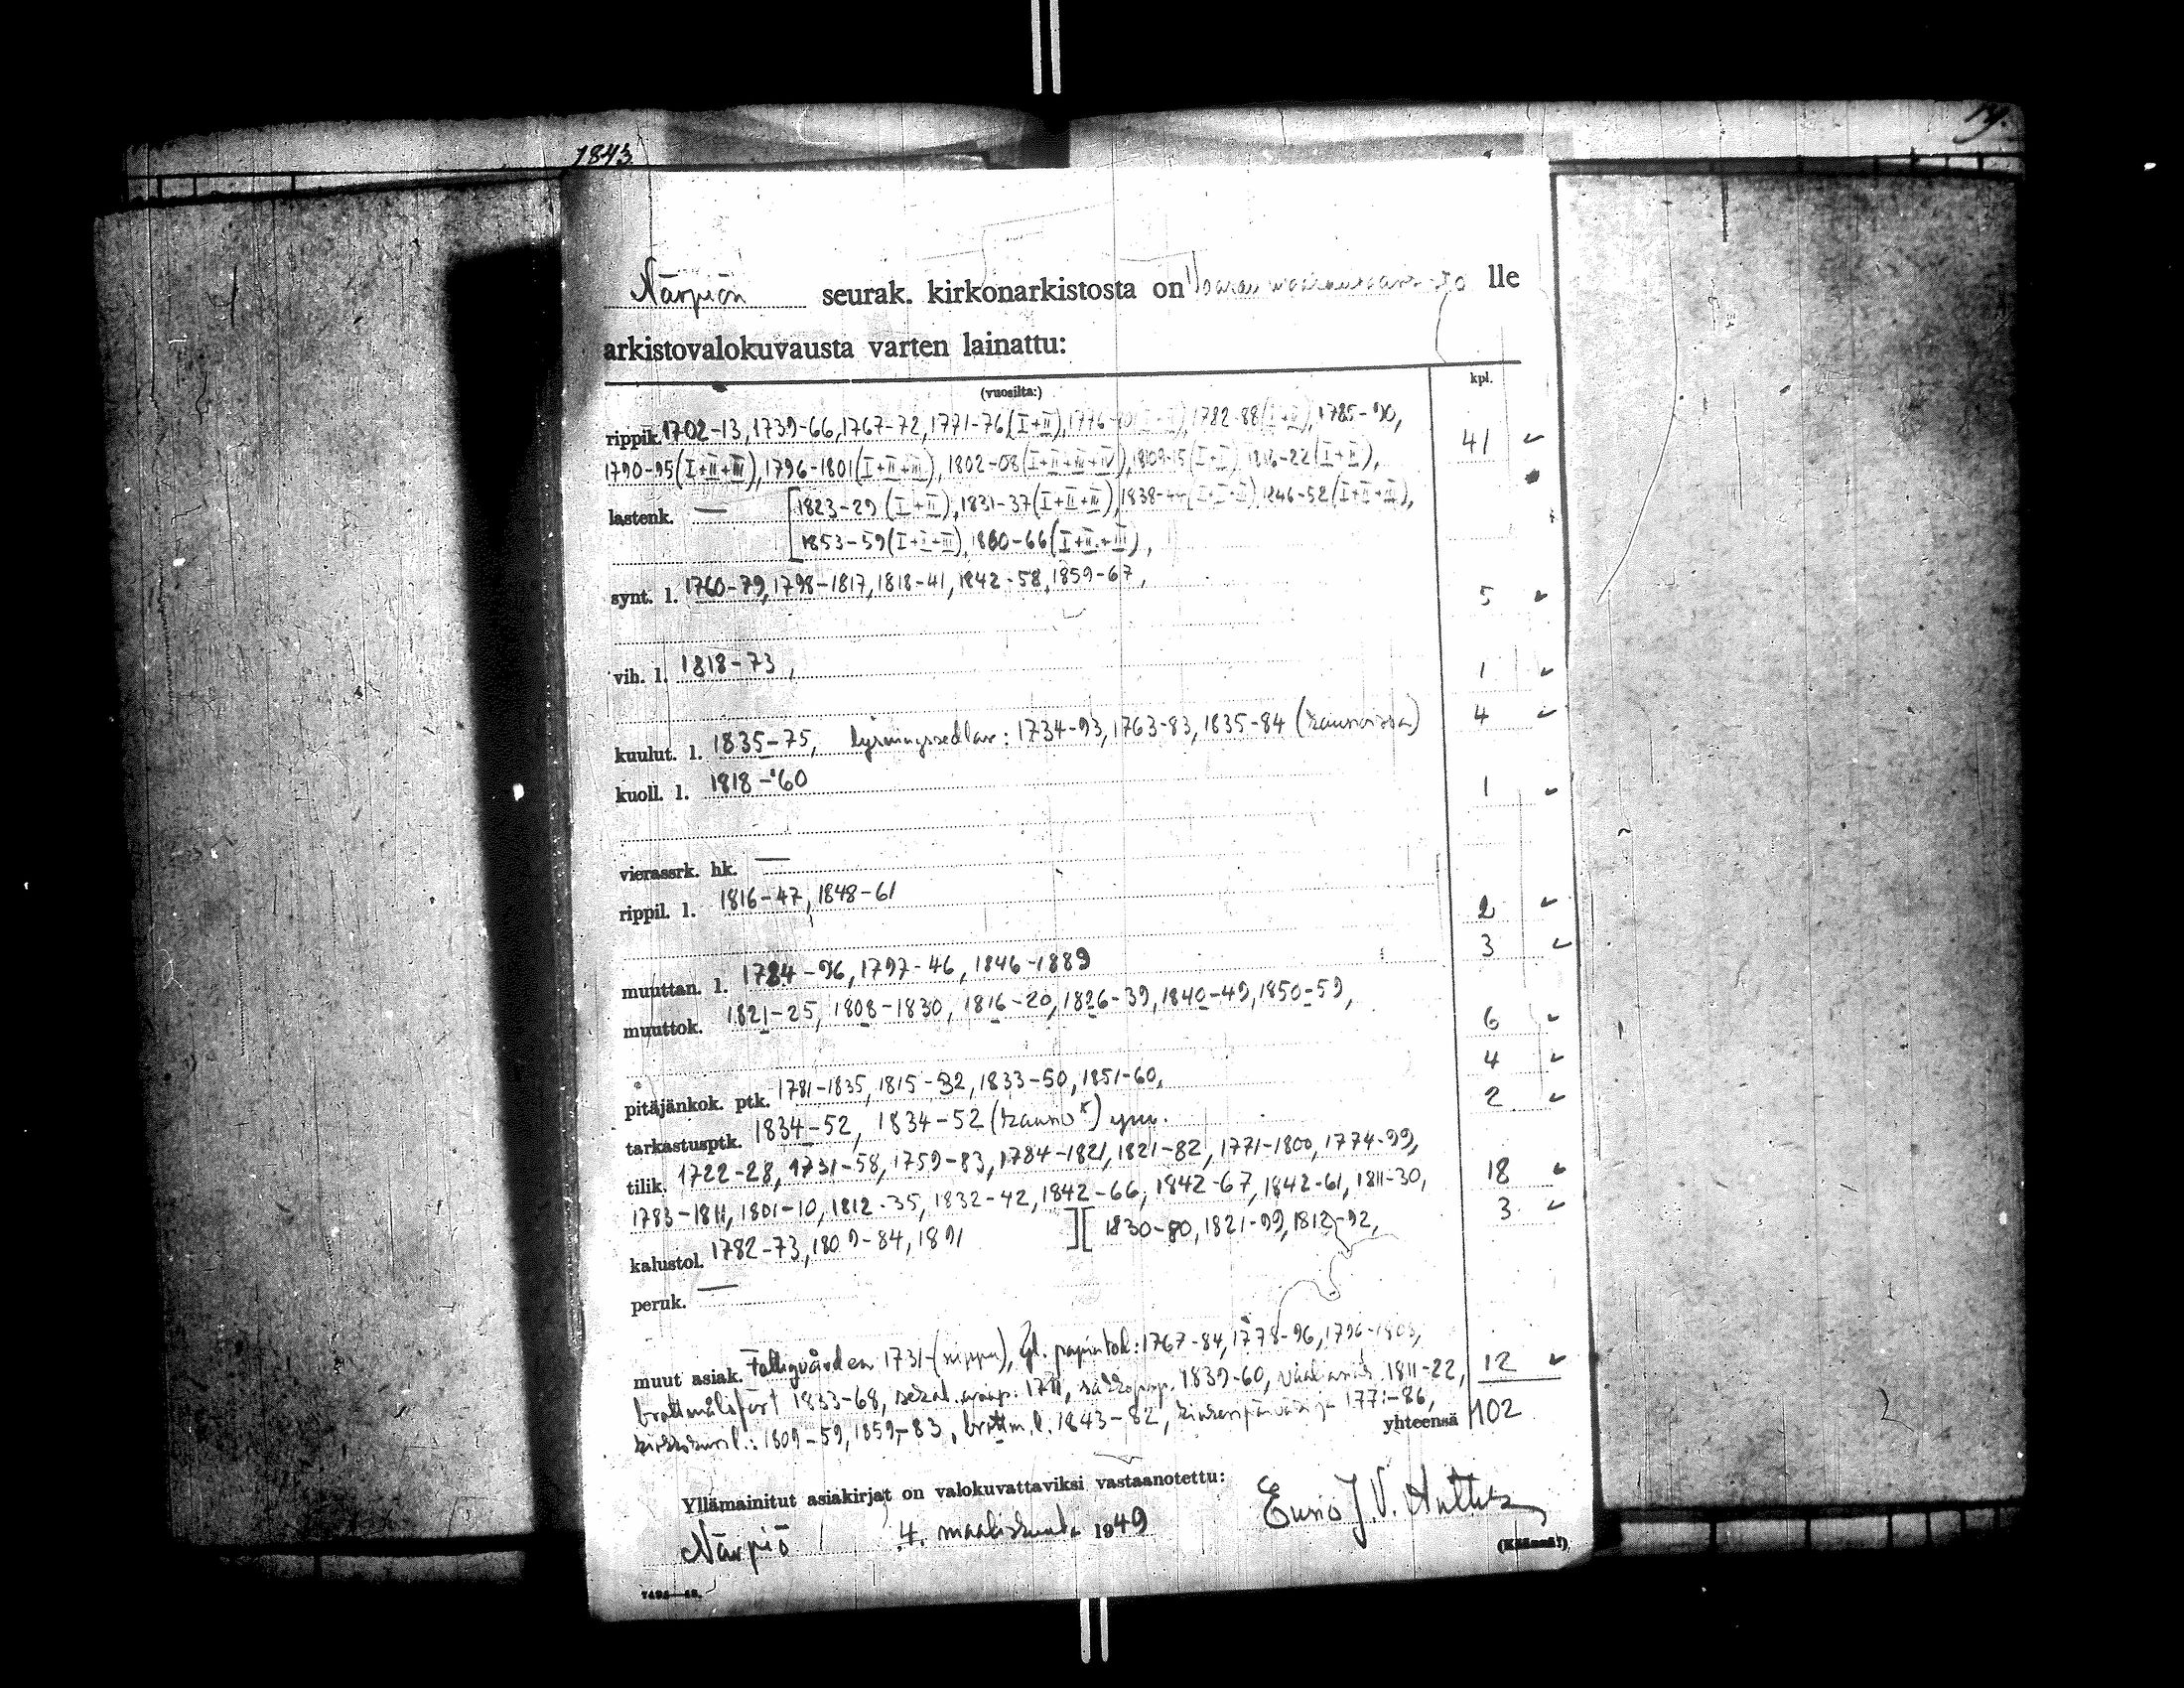 1843
19.
Närpiön seurak. kirkonarkistosta on lle
arkistovalokuvausta varten lainattu:
(vuosilta:) kpl.
rippik. 1702-13, 1739-66, 1767-72, 1771-76 (I+II), 1782-88 (I+II), 1785-90, 41
1790-95 (I+II+III), 1796-1801 (I+II+III), 1802-08 (I+II+III+IV), 1809-15 (I+II) 1816-22 (I+II),
lastenk. — [1823-29 (I+II), 1831-37 (I+II+III), 1846-52 (I+II+III),
1853-59 (I+II+III), 1860-66 (I+II+III),
synt. l. 1760-79, 1798-1817, 1818-41, 1842-58, 1859-67, 5
vih. l. 1818-73, 1
kuulut. l. 1835-75, lysningssedlar: 1734-93, 1763-83, 1835-84 4
kuoll. l. 1818-'60 1
vierassrk. hk. —
rippil. l. 1816-47, 1848-61 2
muuttan. l. 1784-96, 1797-46, 1846-1889 3
muuttok. 1821-25, 1808-1830, 1816-20, 1826-39, 1840-49, 1850-59, 6
pitäjänkok. ptk. 1781-1835, 1815-32, 1833-50, 1851-60, 4
tarkastusptk. 1834-52, 1834-52 ym. 2
tilik. 1722-28, 1731-58, 1759-83, 1784-1821, 1821-82, 1771-1800, 1774-99, 18
1783-1811, 1801-10, 1812-35, 1832-42, 1842-66, 1842-67, 1842-61, 1811-30,
kalustol. 1782-73, 1809-84, 1891 ][ 1830-80, 1821-99, 1812-92, 3
peruk. —
muut asiak. 1731- (nippu), 1767-84, 1778-96, 1796-1803, 12
1833-68, 1839-60, 1811-22,
1809-59, 1859-83, brottm. l. 1843-82,
yhteensä 102
Yllämainitut asiakirjat on valokuvattaviksi vastaanotettu:
Närpiö 4. maaliskuuta 1949 Euno J. V.
(Käännä!)